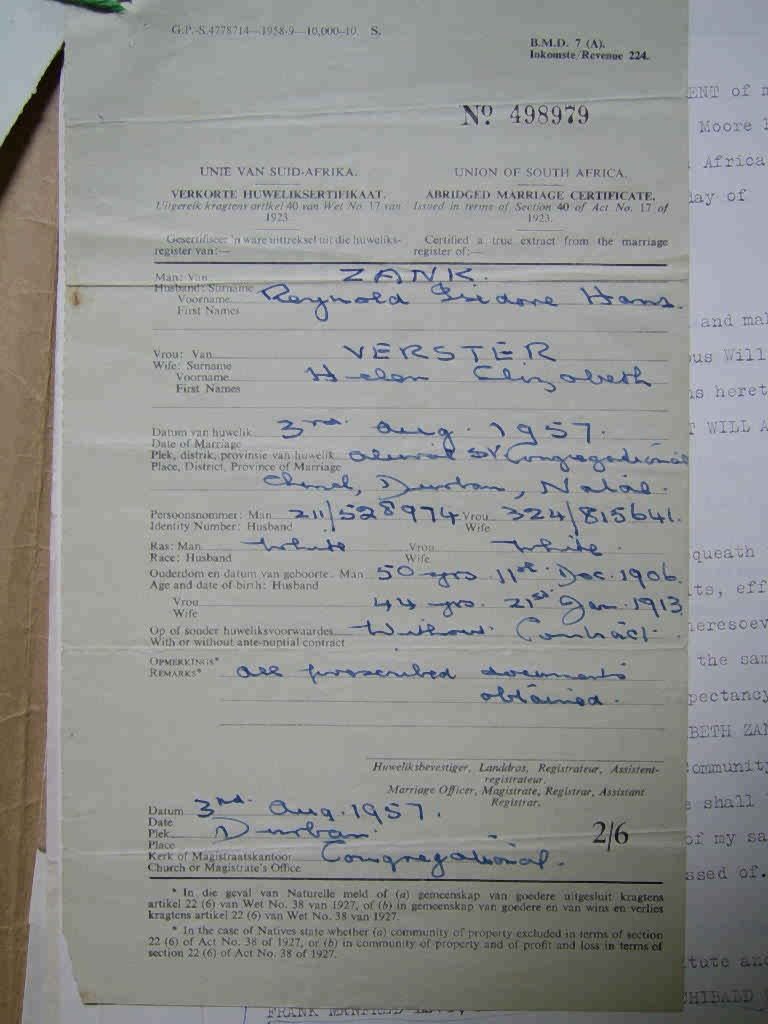 G.P.-S.4778714—1958-9—10,000-10. S.
B.M.D. 7 (A).
Inkomste/Revenue 224.
No 498979
UNIE VAN SUID-AFRIKA.
VERKORTE HUWELIKSERTIFIKAAT.
Uitgereik kragtens artikel 40 van Wet No. 17 van
1923
Gesertifiseer 'n ware uittreksel uit die huweliks-
register van:—
UNION OF SOUTH AFRICA.
ABRIDGED MARRIAGE CERTIFICATE.
Issued in terms of Section 40 of Act No. 17 of
1923.
Certified a true extract from the marriage
register of:—
Man: Van ZANK.
Husband: Surname
Voorname Reynold Isidore Hans.
First Names
Vrou: Van VERSTER
Wife: Surname
Voorname Helen Elizabeth
First Names
Datum van huwelik 3rd. Aug. 1957.
Date of Marriage
Plek, distrik, provinsie van huwelik St Congregational
Place, District, Province of Marriage
Chapel, Durban, Natal.
Persoonsnommer: Man 211/528974 Vrou 324/815641.
Identity Number: Husband Wife
Ras: Man White Vrou White.
Race: Husband Wife
Ouderdom en datum van geboorte: Man 50 yrs. 11th. Dec. 1906.
Age and date of birth: Husband
Vrou 44 yrs. 21st Jan. 1913
Wife
Op of sonder huweliksvoorwaardes Without Contract.
With or without ante-nuptial contract
OPMERKINGS*
REMARKS* All prescribed documents
obtained.
Huweliksbevestiger, Landdros, Registrateur, Assistent-
registrateur.
Marriage Officer, Magistrate, Registrar, Assistant
Registrar.
Datum 3rd. Aug. 1957.
Date
Plek Durban.
Place
2/6
Kerk of Magistraatskantoor Congregational.
Church or Magistrate's Office
* In die geval van Naturelle meld of (a) gemeenskap van goedere uitgesluit kragtens
artikel 22 (6) van Wet No. 38 van 1927, of (b) in gemeenskap van goedere en van wins en verlies
kragtens artikel 22 (6) van Wet No. 38 van 1927.
* In the case of Natives state whether (a) community of property excluded in terms of section
22 (6) of Act No. 38 of 1927, or (b) in community of property and of profit and loss in terms of
section 22 (6) of Act No. 38 of 1927.
ENT of m
Moore
Africa
day of
and mak
ous Will
s heret
T WILL A
queath
ts, eff
heresoev
the sam
pectancy
BETH ZAN
Community
shall
of my sa
ssed of.
tute and
CHIBALD
FRANK MANFIELD